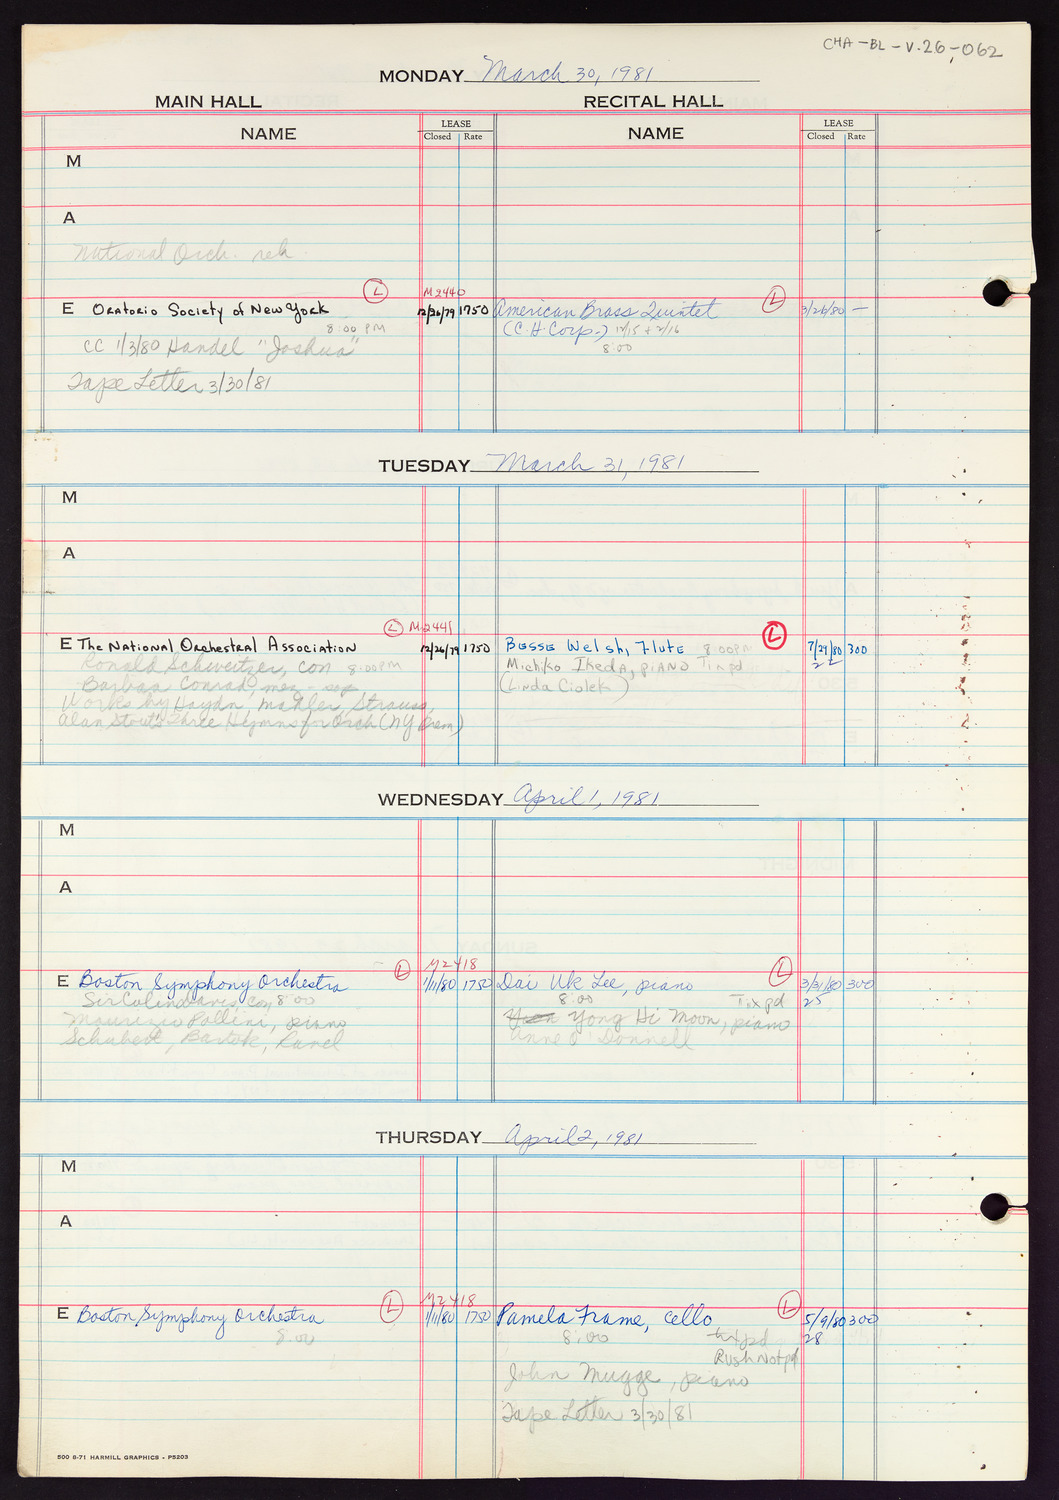 CHA-BL-V.26-062
MONDAY March 30, 1981
MAIN HALL RECITAL HALL
NAME LEASE Closed Rate NAME LEASE Closed Rate
M
A
National Orch. reh.
L M2440 L
E Oratorio Society of New York 12/26/79 1750 American Brass Quintet 3/26/80 —
8:00 PM (C.H. Corp.) 12/15 + 2/16
CC 1/3/80 Handel "Joshua" 8:00
Tape Letter 3/30/81
TUESDAY March 31, 1981
M
A
L M2441 L
E The National Orchestral Association 12/26/79 1750 Besse Welsh, Flute 8:00PM 7/29/80 300
Ronald Schweitzer, con 8:00PM Michiko Ikeda, piano Tix pd 22
Barbara Conrad, mez-sop (Linda Ciolek)
Works by Haydn, Mahler, Strauss,
Alan Stout's Three Hymns for Orch (NY Prem)
WEDNESDAY April 1, 1981
M
A
L M2418 L
E Boston Symphony Orchestra 1/11/80 1750 Dai Uk Lee, piano 3/31/80 300
Sir Colin Davis con 8:00 8:00 Tix pd 25
Maurizio Pollini, piano Yong Hi Moon, piano
Schubert, Bartok, Ravel Anne O'Donnell
THURSDAY April 2, 1981
M
A
L M2418 L
E Boston Symphony Orchestra 1/11/80 1750 Pamela Frame, cello 5/9/80 300
8:00 8:00 tix pd 28
Rush Not pd
John Mugge, piano
Tape Letter 3/30/81
500 8-71 HARMILL GRAPHICS - P5203